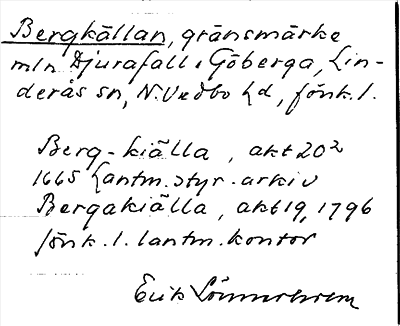 Bergkällan, gränsmärke
mln Djurafall o Göberga, Lin-
derås sn, N. Vedbo hd, Jönk. l.
Berg-kiälla, akt 20²
1665 Lantm.styr. arkiv
Bergakiälla, akt 19, 1796
Jönk. l. lantm. kontor
Erik